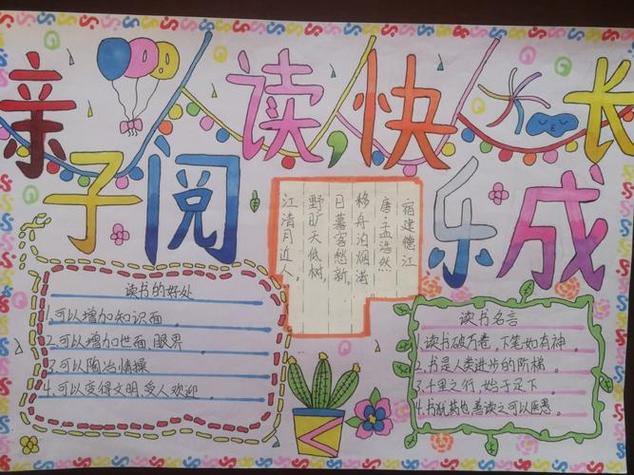 亲子阅读,快乐成长
宿建德江
唐:孟浩然
移舟泊烟渚,
日暮客愁新。
野旷天低树,
江清月近人。
读书的好处
1.可以增加知识面。
2.可以增加世面、眼界
3.可以陶冶情操
4.可以变得文明,受人欢迎。
读书名言
1.读书破万卷,下笔如有神。
2.书是人类进步的阶梯。
3.千里之行,始于足下。
4.书犹药也,善读之可以医愚。